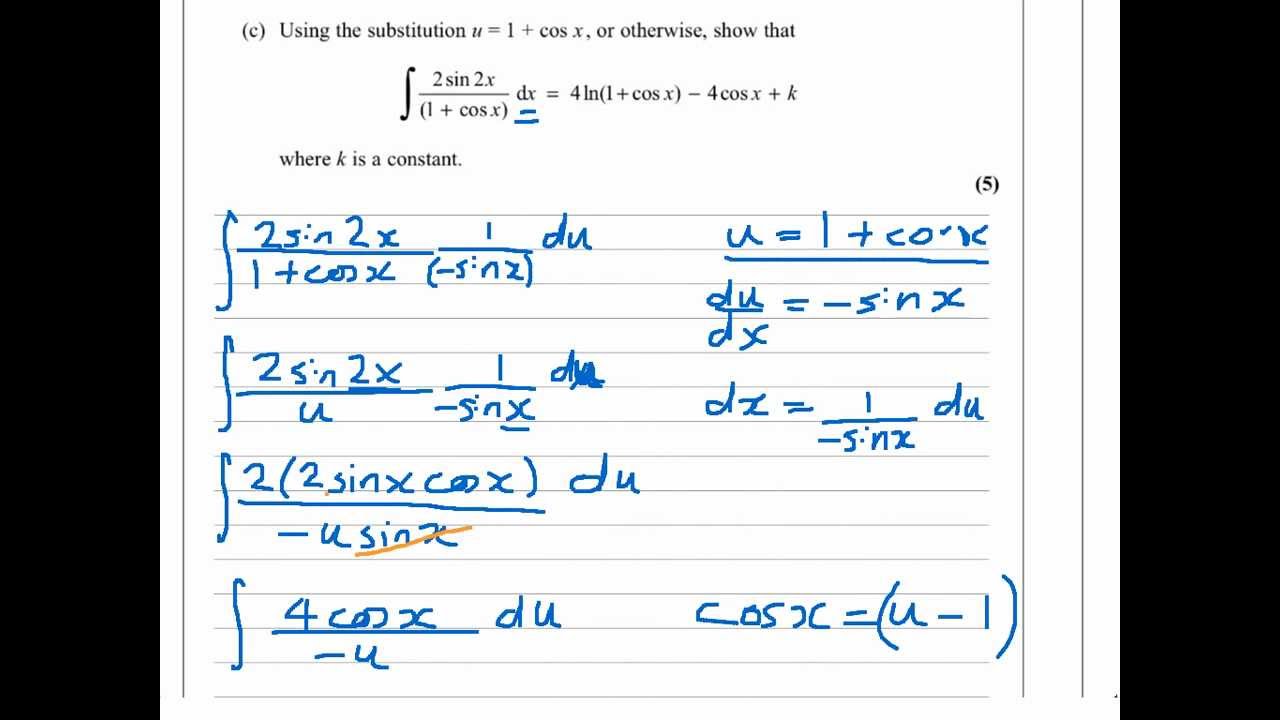 (c) Using the substitution u = 1 + cos x, or otherwise, show that
∫ 2 sin 2x / (1 + cos x) dx = 4 ln(1 + cos x) − 4 cos x + k
where k is a constant.
(5)
∫ 2 sin 2x / 1 + cos x 1 / (−sin x) du
u = 1 + cos x
du / dx = −sin x
∫ 2 sin 2x / u 1 / −sin x du
dx = 1 / −sin x du
∫ 2(2 sin x cos x) / −u sin x du
∫ 4 cos x / −u du
cos x = (u − 1)